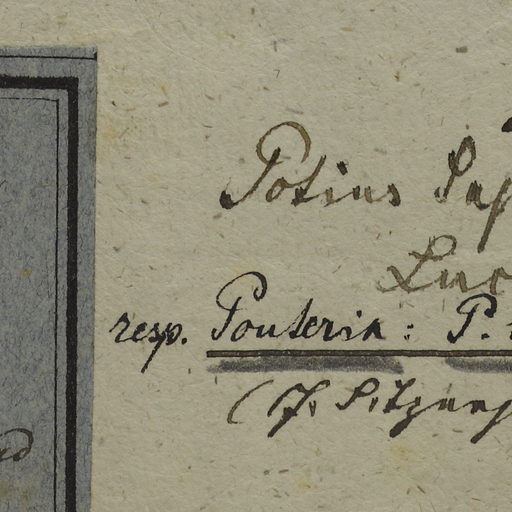 Potius Sap
Luc
resp. Pouteria: P.
(J. Sitzung